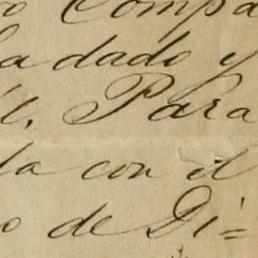 ro Compa
ha dado y
él. Para
da con el
o de Di=